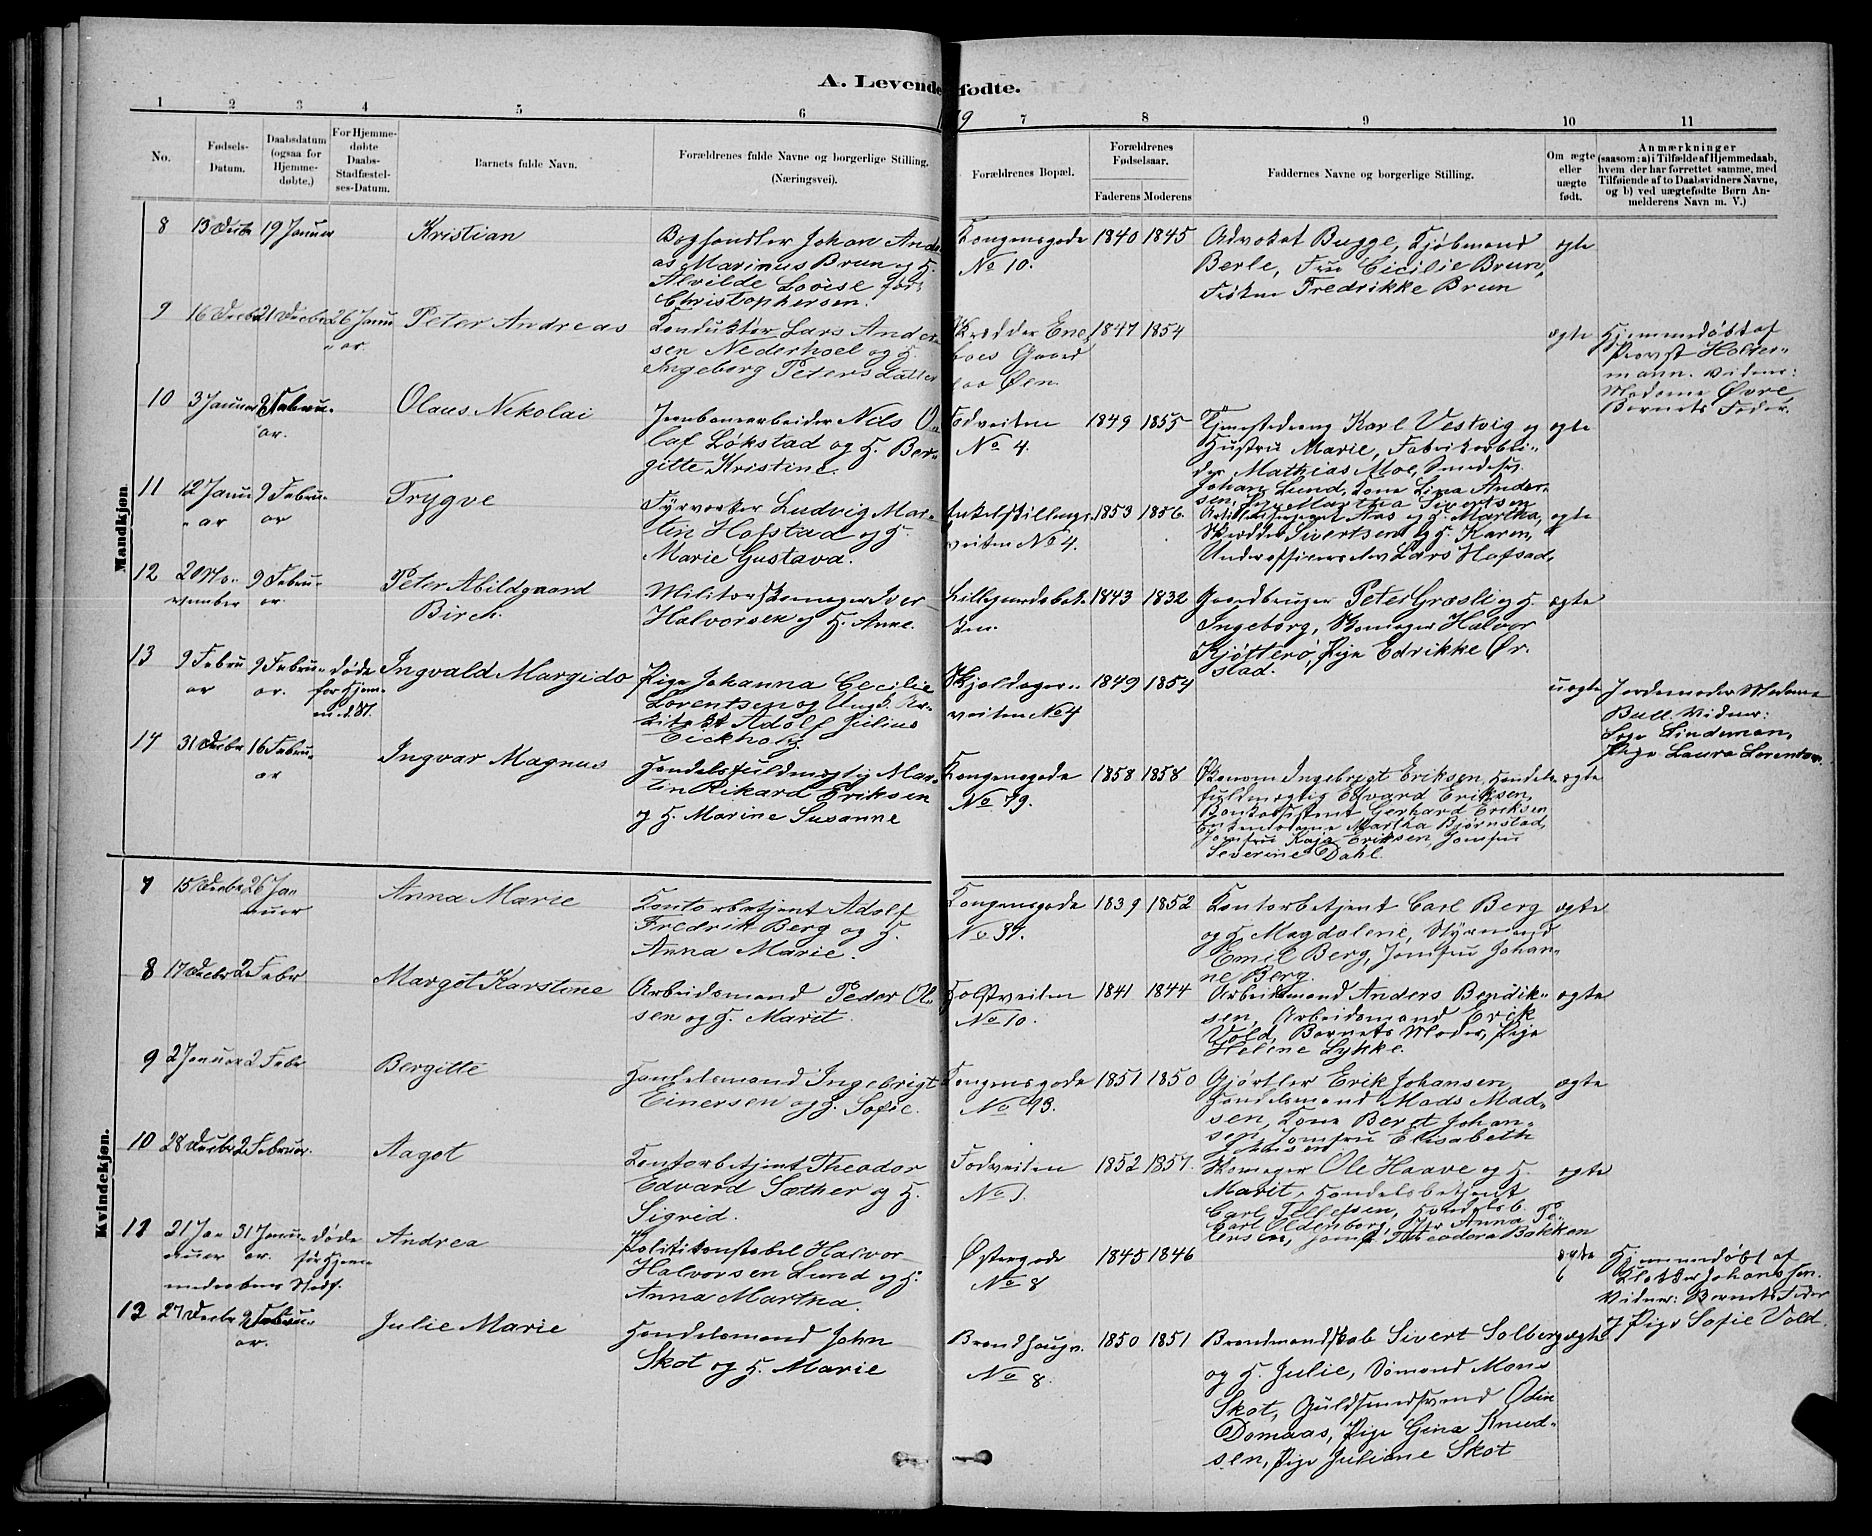 A. Levende fødte.
1 2 3 4 5 6 7 8 9 10 11
No.
Fødsels-
Datum.
Daabsdatum
(ogsaa for
Hjemme-
døbte.)
For Hjemme-
døbte
Daabs-
Stadfæstel-
ses-Datum.
Barnets fulde Navn.
Forældrenes fulde Navne og borgerlige Stilling.
(Næringsvei).
Forældrenes Bopæl.
Forældrenes
Fødselsaar.
Faderens Moderens
Faddernes Navne og borgerlige Stilling.
Om ægte
eller
uægte
født.
Anmærkninger
(saasom: a) i Tilfælde af Hjemmedaab,
hvem der har forrettet samme, med
Tilføiende af to Daabsvidners Navne,
og b) ved uægtefødte Børn An-
melderens Navn m. V.)
Mandkjøn.
8 13 Decbr 19 Januar Kristian
Boghandler Johan Andre
as Marinus Brun og H.
Alvilde Lovise født
Christophersen.
Kongensgade
No 10.
1840 1845
Advokat Bugge, Kjøbmand
Berle, Fru Cicilie Brun,
Frøken Fredrikke Brun
ægte
9 16 Decbr 21 Decbr 26 Janu
ar
Peter Andreas
Konduktør Lars Ander
sen Nederhoel og H.
Ingeborg Petersdatter
Gaard
paa Øen.
1847 1854
ægte
Hjemmedøbt af
Provst Holter-
mann. Vidner:
Madame Øvre
Barnets Fader.
10 3 Januar 2 Febru-
ar.
Olaus Nikolai
Jernbanearbeider Nils O
laf Løkstad og H. Ber-
gitte Kristine.
Fodveiten
No 4.
1849 1855
Tjenestedreng Karl Vestvig og
Hustru Marie, Fabrikarbei-
der Mathias Moe, Smedesv.
Johan Lund, Kone Lina Ander-
sen, Pige Martha Sivertsen
ægte
11 12 Janu
ar
9 Febru-
ar
Trygve
Fyrvorker Ludvig Mar-
tin Hofstad og H.
Marie Gustava.
Enkeltskillings-
veiten No 4.
1853 1856.
Aas og H. Martha,
Skrædder Sivertsen og H. Karen,
Underofficerselev Lars Hofstad.
ægte
12 20 No-
vember
9 Febru-
ar.
Peter Abildgaard
Birch.
Militærskomager Iver
Halvorsen og H. Anne.
Lillegaardsbak-
ken.
1843 1832
Gaardbruger Peter Græsli og H.
Ingeborg, Skomager Halvor
Kjøtterø, Pige Edrikke Ør-
stad.
ægte
13 9 Febru
ar
9 Febru-
ar.
døde
før Hjem-
med. St.
Ingvald Margido
Pige Johanna Cecilie
Lorentsen og Ungk. Ar-
kitekt Adolf Julius
Eickholz
Skjoldager-
veiten No 4
1849 1854
uægte
Jordemoder Madame
Bull. Vidner:
Lindeman,
Pige Laura Lorentsen.
14 31 Decbr 16 Febru-
ar
Ingvar Magnus
Handelsfuldmægtig Mar-
tin Rikard Eriksen
og H. Marine Susanne
Kongensgade
No 79.
1858 1858
Økonom Ingebrigt Eriksen, Handels-
fuldmægtig Edvard Eriksen,
Bankassistent Gerhard Eriksen
Enkemadame Martha Bjørnstad,
Jomfru Kaja Eriksen, Jomfru
Severine Dahl.
ægte
Kvindekjøn.
7 15 Decbr 26 Ja-
nuar
Anna Marie
Kontorbetjent Adolf
Fredrik Berg og H.
Anna Marie.
Kongensgade
No 37.
1839 1852
Kontorbetjent Carl Berg
og H. Magdalene, Styrmand
Emil Berg, Jomfru Johan-
ne Berg.
ægte
8 17 Decbr 2 Febr
Margot Karstine
Arbeidsmand Peder Ol-
sen og H. Marit.
Holstveiten
No 10.
1841 1844
Arbeidsmand Anders Bendik-
sen, Arbeidsmand Erik
Vold, Barnets Moder, Pige
Helene Lykke.
ægte
9 2 Januar 2 Febr
Bergitte
Handelsmand Ingebrigt
Einersen og H. Sofie.
Kongensgade
No 93.
1851 1850
Gjørtler Erik Johansen,
Handelsmand Mads Mad-
sen, Kone Beret Johan-
sen, Jomfru Elisabeth
Johansen
ægte
10 28 Decbr 2 Februar.
Aagot
Kontorbetjent Theodor
Edvard Sæther og H.
Sigrid.
Fodveiten
No 3.
1852 1857.
Skomager Ole Haave og H.
Marit, Handelsbetjent
Carl Tellefsen, Handelsb.
Carl Oldenborg, Anna Pe-
tersen, Jomf. Theodora Bakken
ægte
11 21 Ja-
nuar
31 Janu-
ar.
døde
før Hjem-
medaabens Stadf.
Andrea
Politikonstabel Halvor
Halvorsen Lund og H.
Anna Martha.
Østergade
No 8
1845 1846
ægte
Hjemmedøbt af
Klokker Johanssen.
Vidner: Barnets Fader
og Pige Sofie Vold.
12 27 Decbr 2 Febru-
ar.
Julie Marie
Handelsmand John
Skot og H. Marie
Brandhaugv.
No 8.
1850 1851
Brandmandskab Sivert Solberg
og H. Julie, Sømand Mons
Skot, Guldsmedsvend Odin
Domaas, Pige Gina Knud-
sen, Pige Juliane Skot
ægte